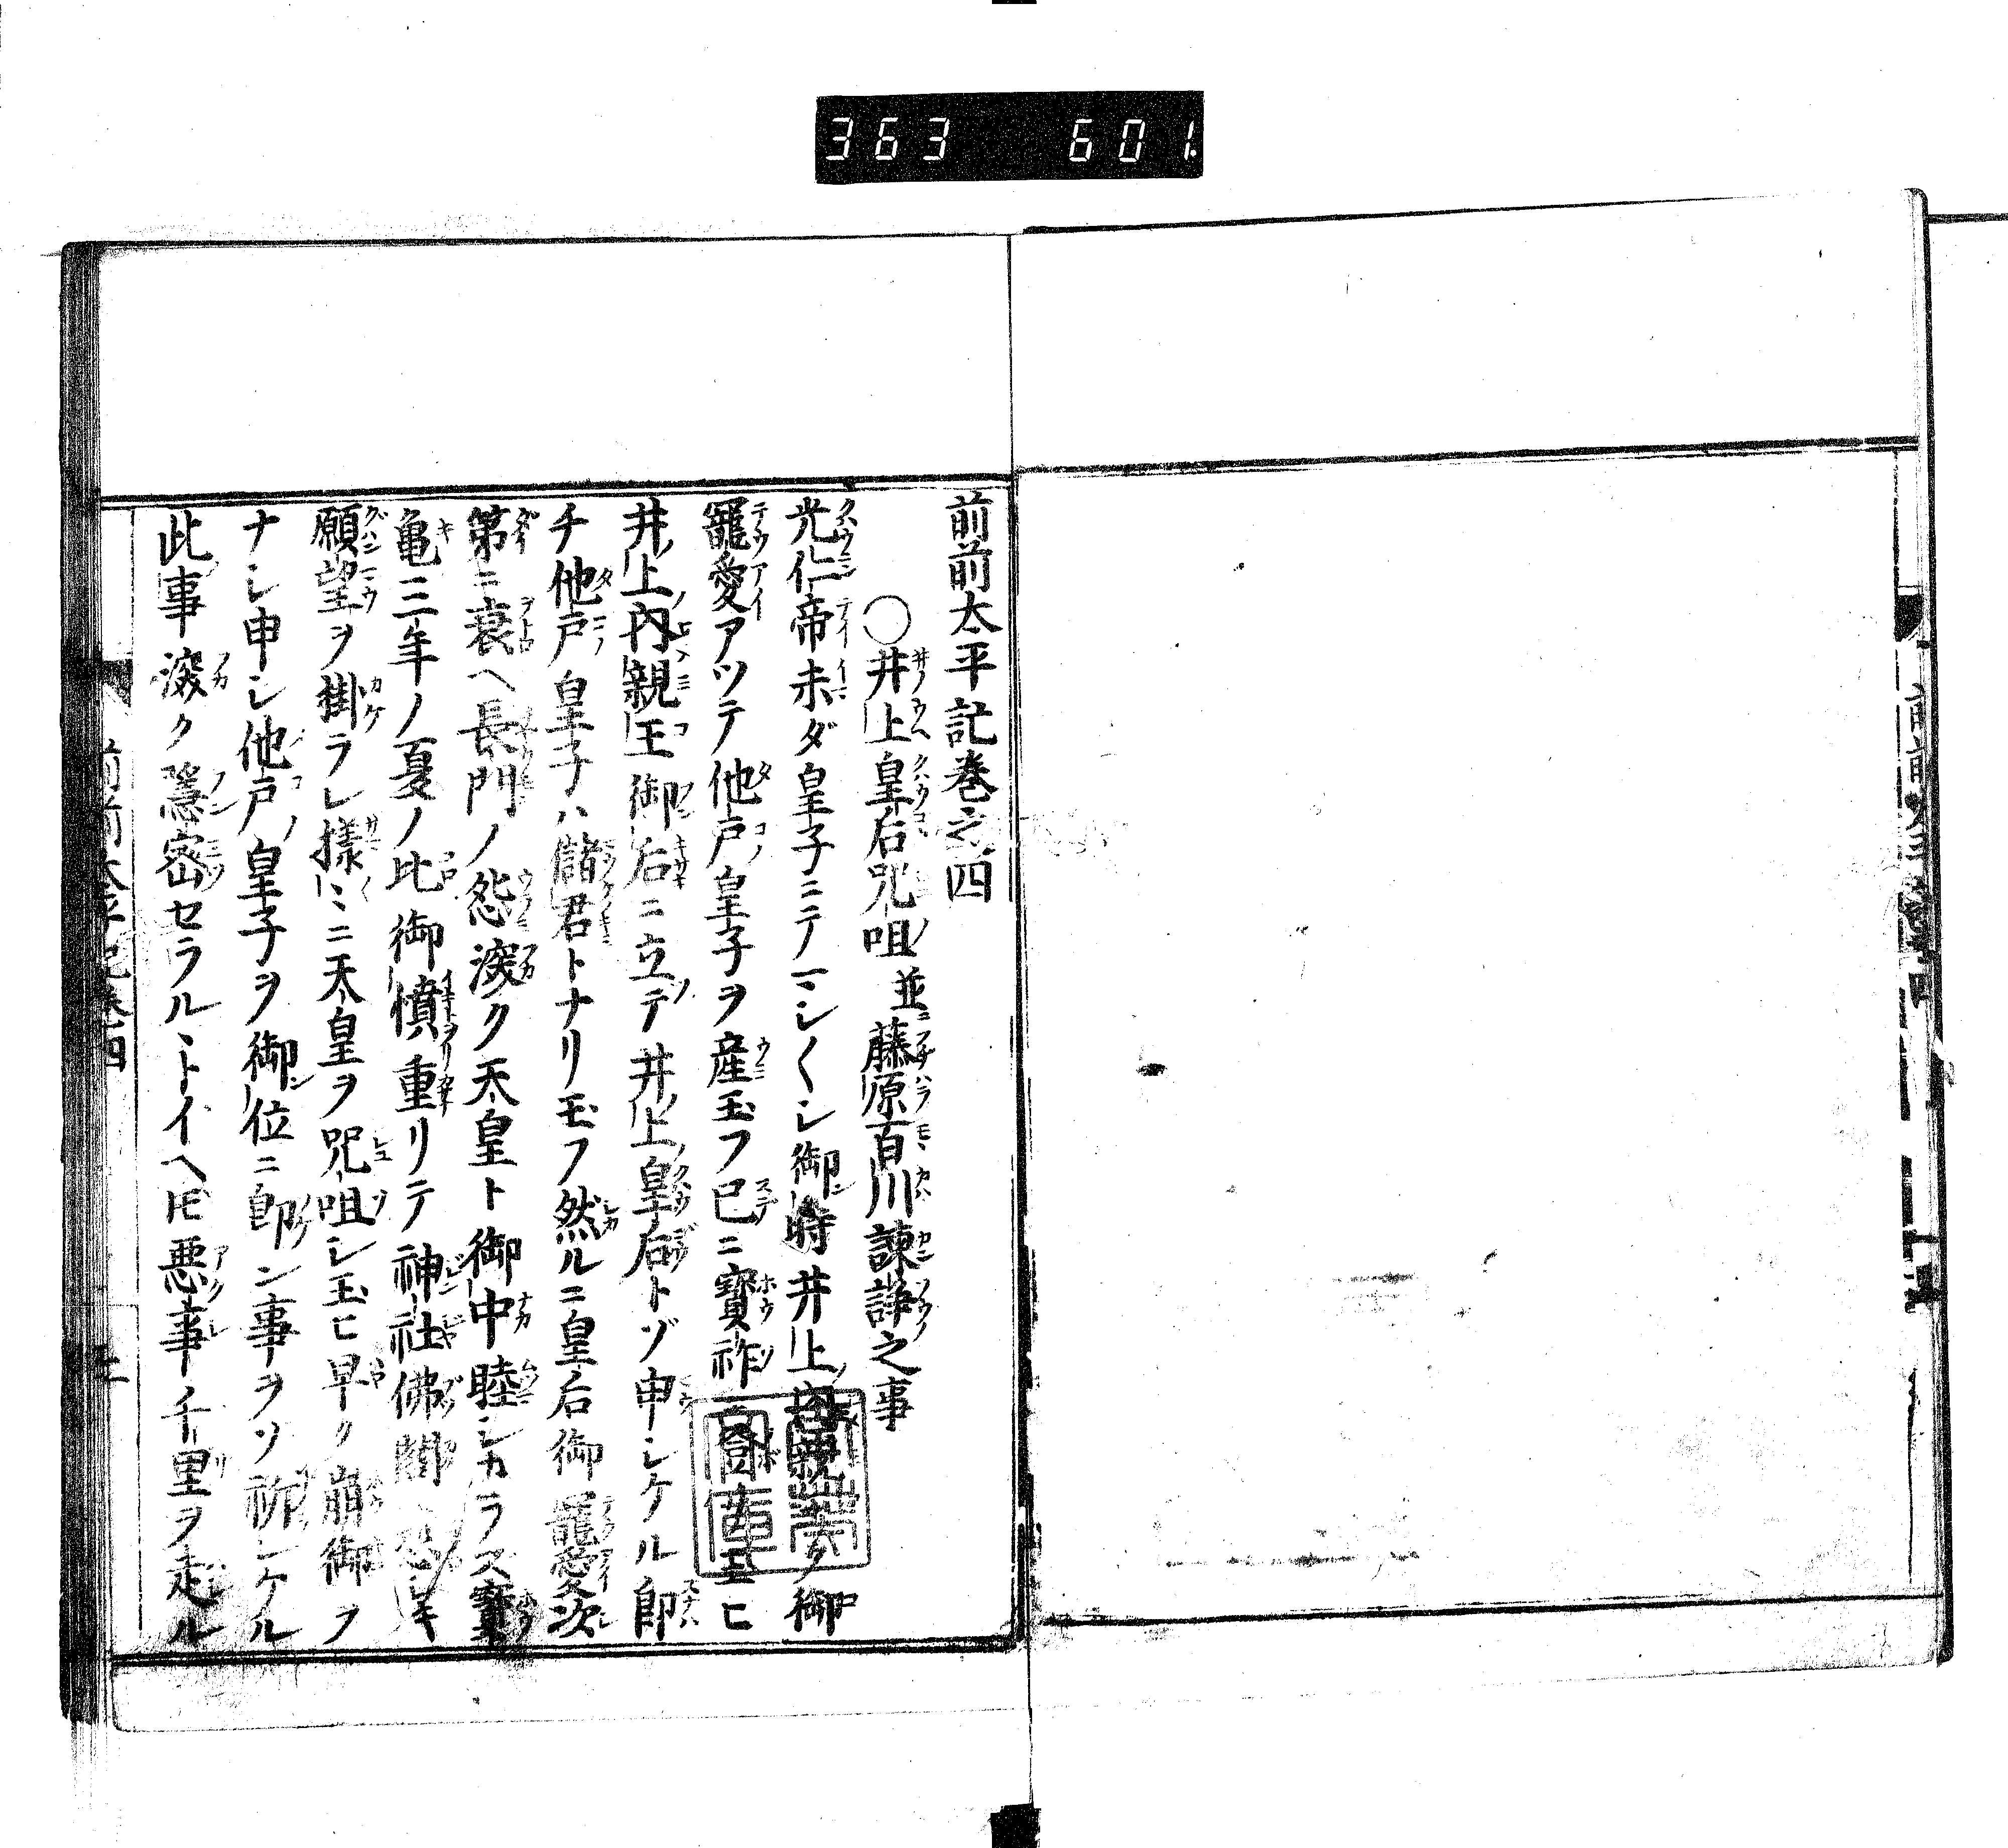 363 601
前前太平記巻之四
〇井上皇后咒咀並藤原百川諌諍之事
光仁帝未ダ皇子ニテマシ〱シ御時井上内親王ノ御
寵愛アツテ他戸皇子ヲ産玉フ已ニ寳祚ニ登玉ヒ
井上内親王御后ニ立テ井上皇后トゾ申シケル即
チ他戸皇子ハ儲君トナリ玉フ然ルニ皇后御寵愛次
第ニ衰ヘ長門ノ怨深ク天皇ト御中睦シカラス寳
亀三年ノ夏ノ比御憤重リテ神社佛閣恐シキ
願望ヲ掛ラレ様〻ニ天皇ヲ咒咀シ玉ヒ早ク崩御ヲ
ナシ申シ他戸皇子ヲ御位ニ即ン事ヲソ祈シケル
此事深ク隱密セラルヽトイヘ𪜈悪事千里ヲ走ル
前前太平記巻四